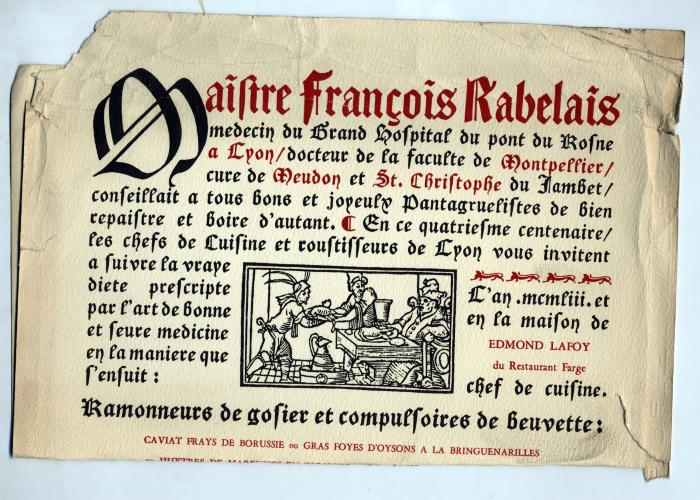 Maistre François Rabelais
medecin du Grand Hospital du pont du Rosne
a Lyon/docteur de la faculte de Montpellier/
cure de Meudon et St. Christophe du Jambet/
conseillait a tous bons et joyeulx Pantagruelistes de bien
repaistre et boire d'autant. ¶ En ce quatriesme centenaire/
les chefs de Cuisine et roustisseurs de Lyon vous invitent
a suivre la vraye
diete prescripte
par l'art de bonne
et seure medicine
en la maniere que
s'ensuit :
L'an .mcmliii. et
en la maison de
EDMOND LAFOY
du Restaurant Farge
chef de cuisine.
Ramonneurs de gosier et compulsoires de beuvette :
CAVIAT FRAYS DE BORUSSIE ou GRAS FOYES D'OYSONS A LA BRINGUENARILLES